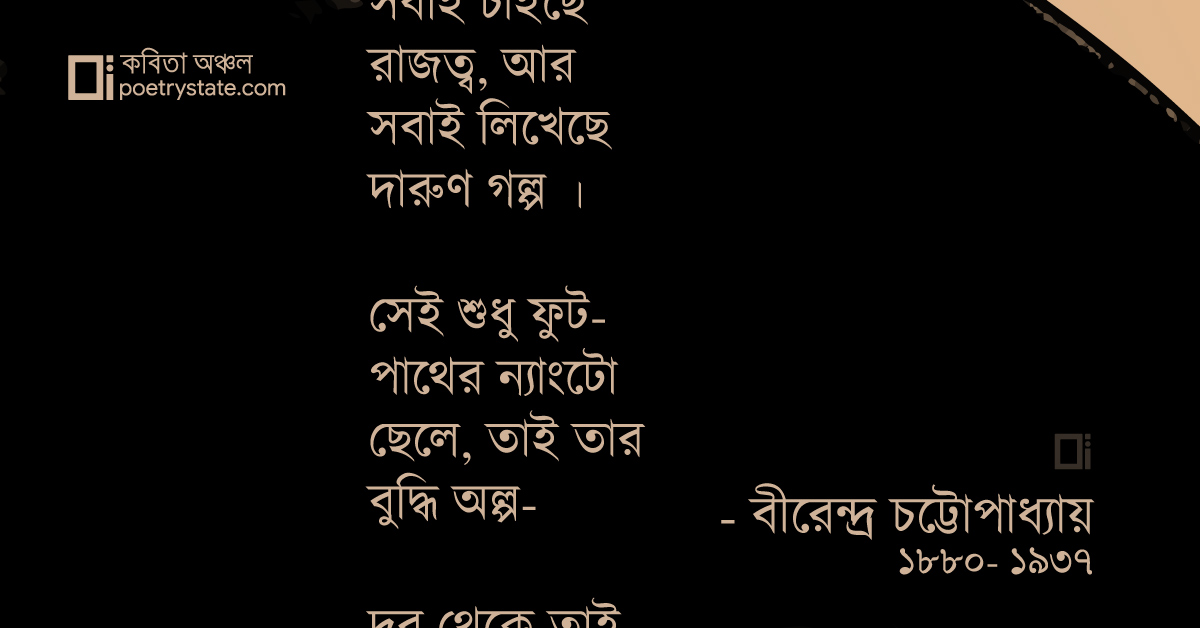 সবাই চাইছে
কবিতা অঞ্চল
poetrystate.com
রাজত্ব, আর
সবাই লিখেছে
দারুণ গল্প ।
সেই শুধু ফুট-
পাথের ন্যাংটো
ছেলে, তাই তার
বুদ্ধি অল্প-
- বীরেন্দ্র চট্টোপাধ্যায়
১৮৮০- ১৯৩৭
দূর থেকে তাই